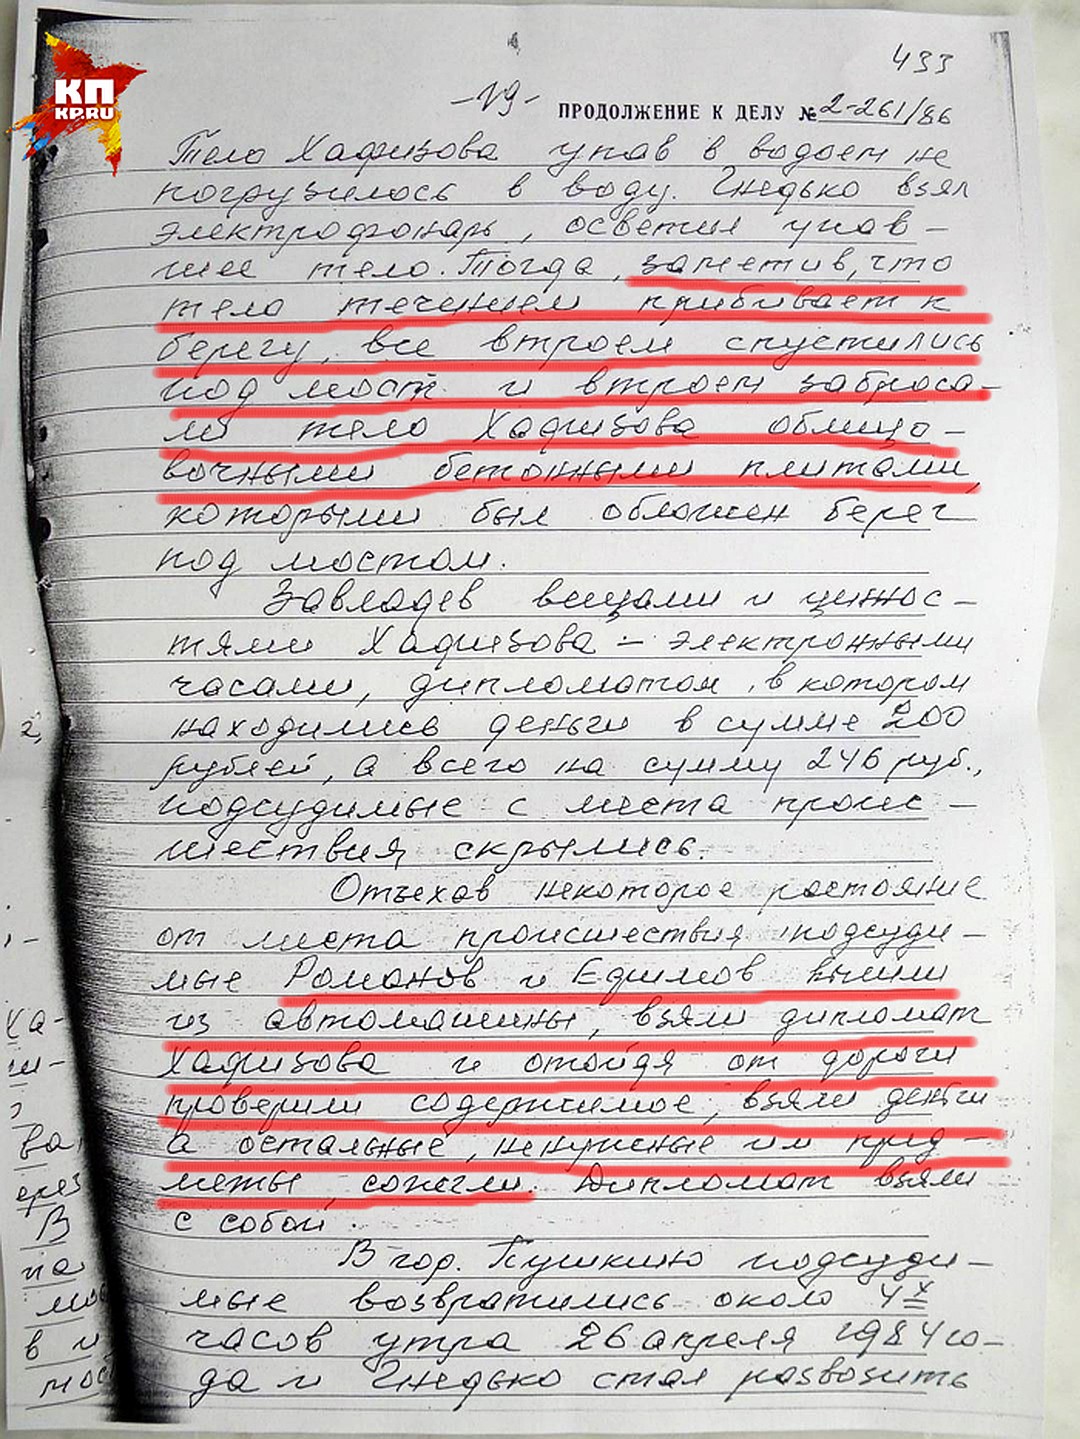 КП
KP.RU
433
-19- ПРОДОЛЖЕНИЕ К ДЕЛУ № 2-261/86
Тело Хафизова упав в водоем не
погрузилось в воду. Гнедько взял
электрофонарь, осветил упав-
шее тело. Тогда, заметив, что
тело течением прибивает к
берегу, все втроем спустились
под мост и втроем заброса-
ли тело Хафизова облицо-
вочными бетонными плитами,
которыми был обложен берег
под мостом.
Завладев вещами и ценнос-
тями Хафизова - электронными
часами, дипломатом, в котором
находились деньги в сумме 200
рублей, а всего на сумму 246 руб.,
подсудимые с места проис-
шествия скрылись.
Отъехав некоторое ростояние
от места происшествия подсуди-
мые Романов и Ефимов вышли
из автомашины, взяли дипломат
Хафизова и отойдя от дороги
проверили содержимое, взяли деньги
а остальные, ненужные им пред-
меты, сожгли. Дипломат взяли
с собой.
В гор. Пушкино подсуди-
мые возвратились около 4х
часов утра 26 апреля 1984 го-
да и Гнедько стал развозить
2,
ха-
ши-
ва
через
В
на
мос
в и
мос